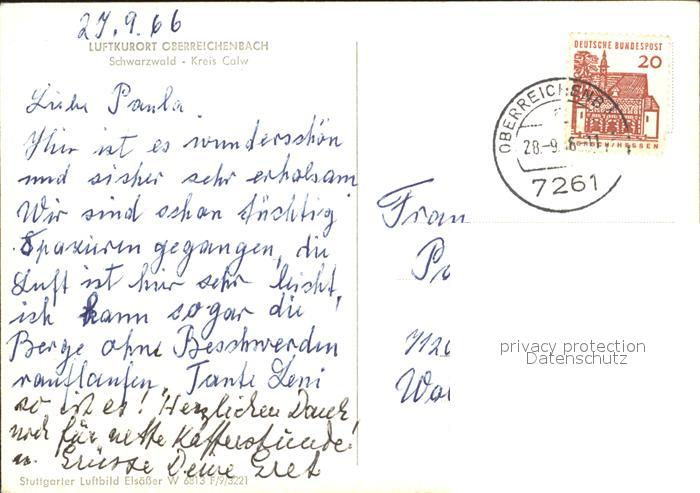 27.9.66
LUFTKURORT OBERREICHENBACH
Schwarzwald - Kreis Calw
Liebe Paula
Hier ist es wunderschön
und sicher sehr erholsam
Wir sind schon tüchtig
Spazieren gegangen, die
Luft ist hier sehr leicht,
ich kann sogar die
Berge ohne Beschwerden
rauflaufen, Tante Leni
so ist es! Herzlichen Dank
noch für nette Kaffeestunde!
u. Grüsse Deine Gret
Stuttgarter Luftbild Elsäßer W 6813 F/9/3221
DEUTSCHE BUNDESPOST
20
LORSCH/HESSEN
OBERREICHENB
28.-9.
7261
Frau
712
privacy protection
Datenschutz